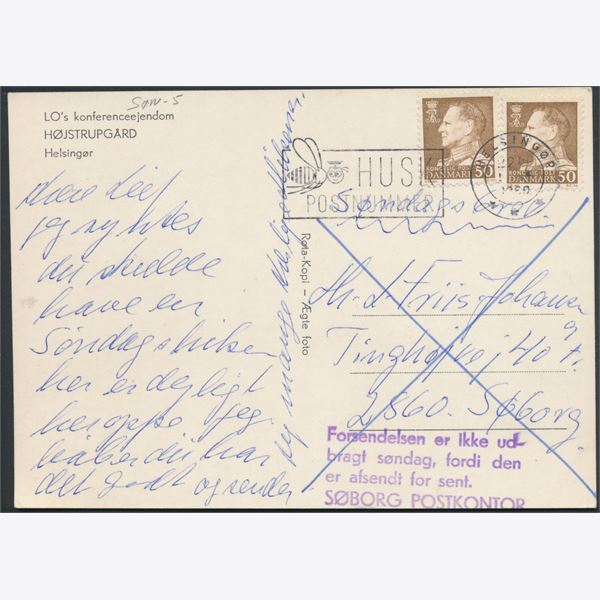 Søn-5
LO's konferenceejendom
HØJSTRUPGÅRD
Helsingør
Kære Leif
jeg syntes
du skulde
have en
Søndagshilsen
her er dejligt
heroppe jeg
håber du har
det godt og sender
dig mange
Rota-Kopi – Ægte foto
HUSK
POSTNUMMER
HELSINGØR
KONGERIGET
DANMARK 50
DANMARK 50
Søndagsbrev
Hr. L. Friis Johansen
Tinghøjvej 40
2860. Søborg
Forsendelsen er ikke ud-
bragt søndag, fordi den
er afsendt for sent.
SØBORG POSTKONTOR